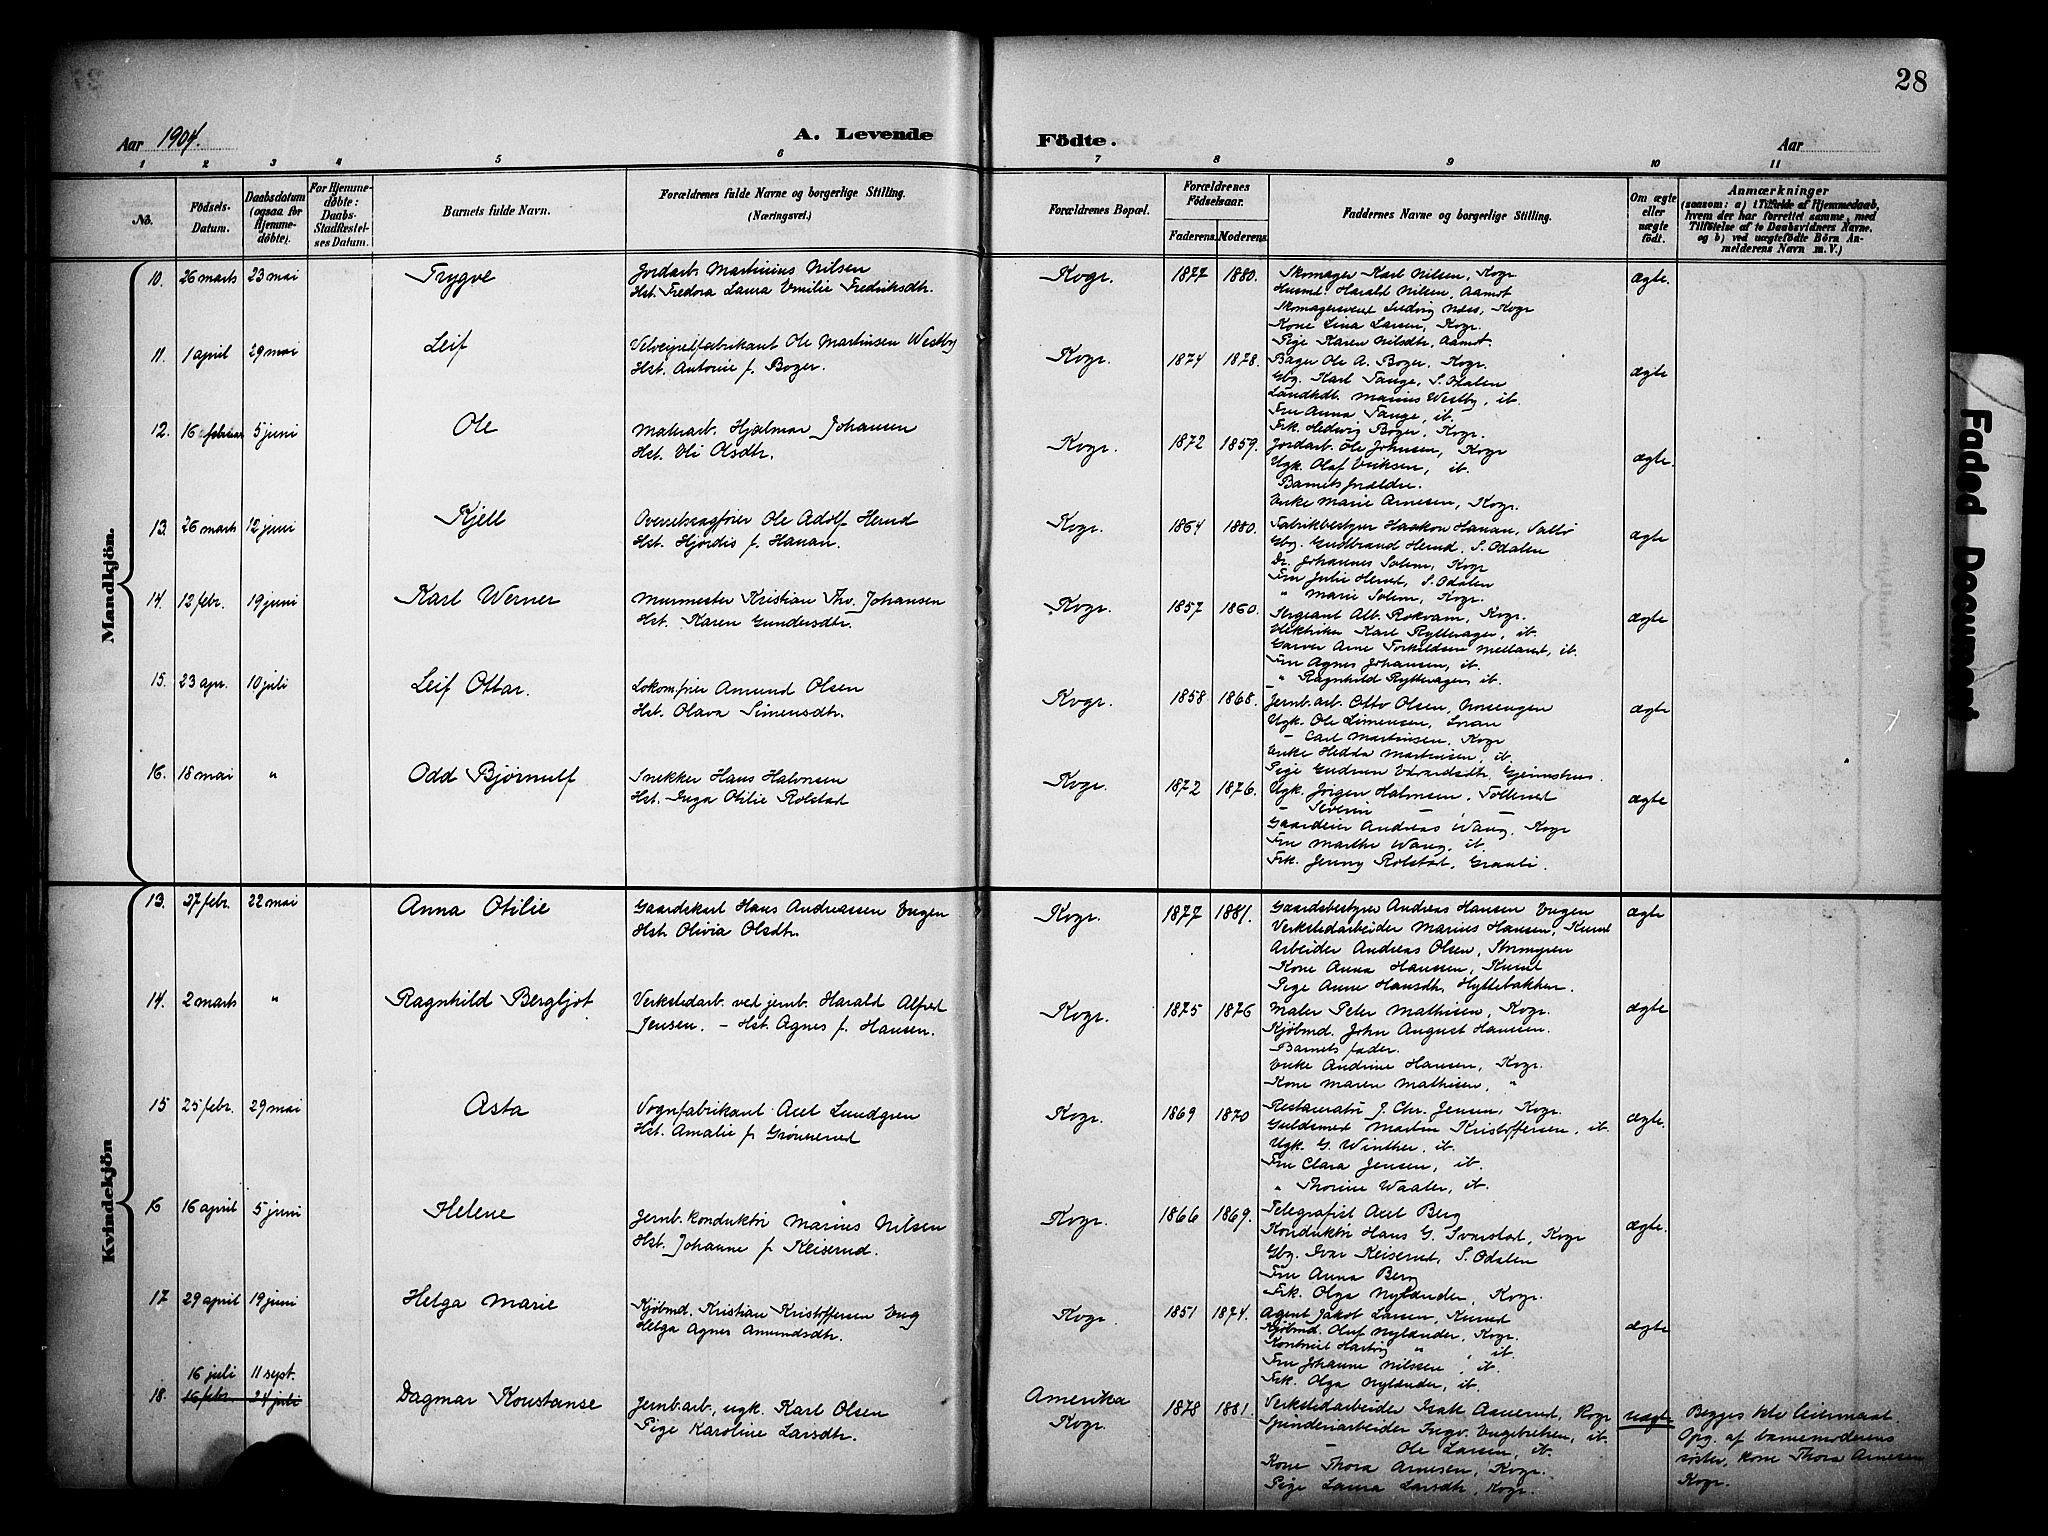 28
Aar 1904.
A. Levende Födte.
Aar
1 2 3 4 5 6 7 8 9 10 11
No.
Födsels-Datum.
Daabsdatum (ogsaa for Hjemme-döbte).
For Hjemme-döbte: Daabs-Stadfestel-ses Datum.
Barnets fulde Navn.
Forældrenes fulde Navne og borgerlige Stilling. (Næringsvei.)
Forældrenes Bopæl.
Forældrenes Födselsaar.
Faderens. Moderens.
Faddernes Navne og borgerlige Stilling.
Om ægte eller uægte født.
Anmærkninger
(saasom: a) i Tilfælde af Hjemmedaab, hvem der har forrettet samme, med Tilföielse af to Daabsvidners Navne. og b) ved uægtefödte Börn An-melderens Navn m. V.)
Mandkjön.
10. 26 marts 23 mai Trygve
Jordarb. Martinius Nilsen
Hst. Fredora Laura Emilie Fredriksdtr.
Kvgr. 1877 1880.
Skomager Karl Nilsen, Kvgr
Husmd. Harald Nilsen, Aamot
Skomagersvend Ludvig Næss, Kvgr
Kone Lina Larsen, Kvgr.
Pige Karen Nilsdtr, Aamot.
ægte.
11. 1 april 29 mai Leif
Ole Martinsen Westby
Hst. Antonie f. Boger.
Kvgr. 1874 1878.
Bager Ole A. Boger, Kvgr.
Gbr. Karl Tange, S. Odalen
Landhdl. Marius Westby, ib.
Fru Anna Tange, ib.
Frk. Hedvig Boger, Kvgr.
ægte
12. 16 februar 5 juni Ole
Hjalmar Johansen
Hst. Eli Olsdtr.
Kvgr. 1872 1859.
Jordarb. Ole Johnsen, Kvgr
Ugk. Olaf Eriksen, ib.
Barnets forældre.
Enke Marie Arnesen, Kvgr.
ægte.
13. 26 marts 12 juni Kjell
Overretssagfører Ole Adolf Hernd
Hst. Hjørdis f. Hanan.
Kvgr. 1864 1880.
Fabrikbestyrer Haakon Hanan, Vallø
Gbr. Gudbrand Hernd, S. Odalen
Dr. Johannes Solem, Kvgr
Fru Julie Hernd, S. Odalen
" Marie Solem, Kvgr.
ægte
14. 12 febr. 19 juni Karl Werner
Murmester Kristian Thv. Johansen
Hst. Karen Gundersdtr.
Kvgr. 1857 1860.
Sergeant Alb. Rokvam, Kvgr.
Elektriker Karl Ryttervager, ib.
Garver Arne Torkildsen Mellerud, ib.
Fru Agnes Johansen, ib.
" Ragnhild Ryttervager, ib.
ægte
15. 23 apr. 10 juli Leif Ottar.
Lokomfyrer Amund Olsen
Hst. Olava Simensdtr.
Kvgr. 1858 1868.
Jernb. arb. Otto Olsen,
Ugk. Ole Simensen,
- Carl Martinsen, Kvgr
Enke Hedda Martinsen, ib.
Pige Gudrun Edvardsdtr,
ægte
16. 18 mai " Odd Bjørnulf
Snekker Hans Halvorsen
Hst. Inga Otilie Rolstad
Kvgr. 1872 1876.
Ugk. Jørgen Halvorsen, Tollerud
- Severin -
Gaardeier Andreas Wang, Kvgr
Fru Marthe Wang, ib.
Frk. Jenny Rolstad, Granli.
ægte
Kvindekjön
13. 27 febr. 22 mai Anna Otilie
Gaardskarl Hans Andreassen Engen
Hst. Olivia Olsdtr.
Kvgr. 1877 1881.
Gaardsbestyrer Andreas Hansen Engen
Verkstedarbeider Marius Hansen,
Arbeider Andreas Olsen,
Kone Anna Hansen,
Pige Anne Hansdtr, Hyttebakken.
ægte
14. 2 marts " Ragnhild Bergljot
Verkstedarb. ved jernb. Harald Alfred
Jensen. - Hst. Agnes f. Hansen.
Kvgr. 1875 1876
Maler Peter Mathisen, Kvgr.
Kjøbmd. John August Hansen.
Barnets fader.
Enke Andrine Hansen, Kvgr.
Kone Maren Mathisen, "
ægte
15 25 febr. 29 mai Asta
Vognfabrikant Axel Lundgren
Hst. Amalie f. Grønnerud
Kvgr. 1869 1870
Restauratør J. Chr. Jensen, Kvgr.
Guldsmed Martin Kristoffersen, ib.
Ugk. G. Winther, ib.
Fru Clara Jensen, ib.
" Thorine Waaler, ib.
ægte.
16 16 april 5 juni Helene
Jernb. konduktør Marius Nilsen
Hst. Johanne f. Keiserud.
Kvgr. 1866 1869.
Telegrafist Axel Berg
Konduktør Hans G. Svarstad, Kvgr
Gbr. Ivar Keiserud, S. Odalen
Fru Anna Berg
Frk. Olga Nylænder, Kvgr.
ægte.
17 29 april 19 juni Helga Marie
Kjøbmd. Kristian Kristoffersen Eng
Helga Agnes Amundsdtr.
Kvgr. 1851 1874.
Agent Jakob Larsen,
Kjøbmd. Oluf Nylænder, Kvgr.
Kontorist Hartvig " , ib.
Fru Johanne Nilssen, ib.
Frk. Olga Nylænder, ib.
ægte
16 juli 11 sept.
18. 16 febr. 24 juli Dagmar Konstanse
Jernb. arb., ugk. Karl Olsen
Pige Karoline Larsdtr.
Amerika
Kvgr. 1878 1881.
Verkstedarbeider Isak Aanerud, Kvgr
Spinderiarbeider Ingv. Engebretsen, ib.
- Ole Larsen, ib.
Kone Thora Arnesen, Kvgr.
Pige Laura Larsdtr, Kvgr.
uægte
Begges 1ste leiermaal.
Opg. af barnemoderens
søster, kone Thora Arnesen
Kvgr.
Faded Document